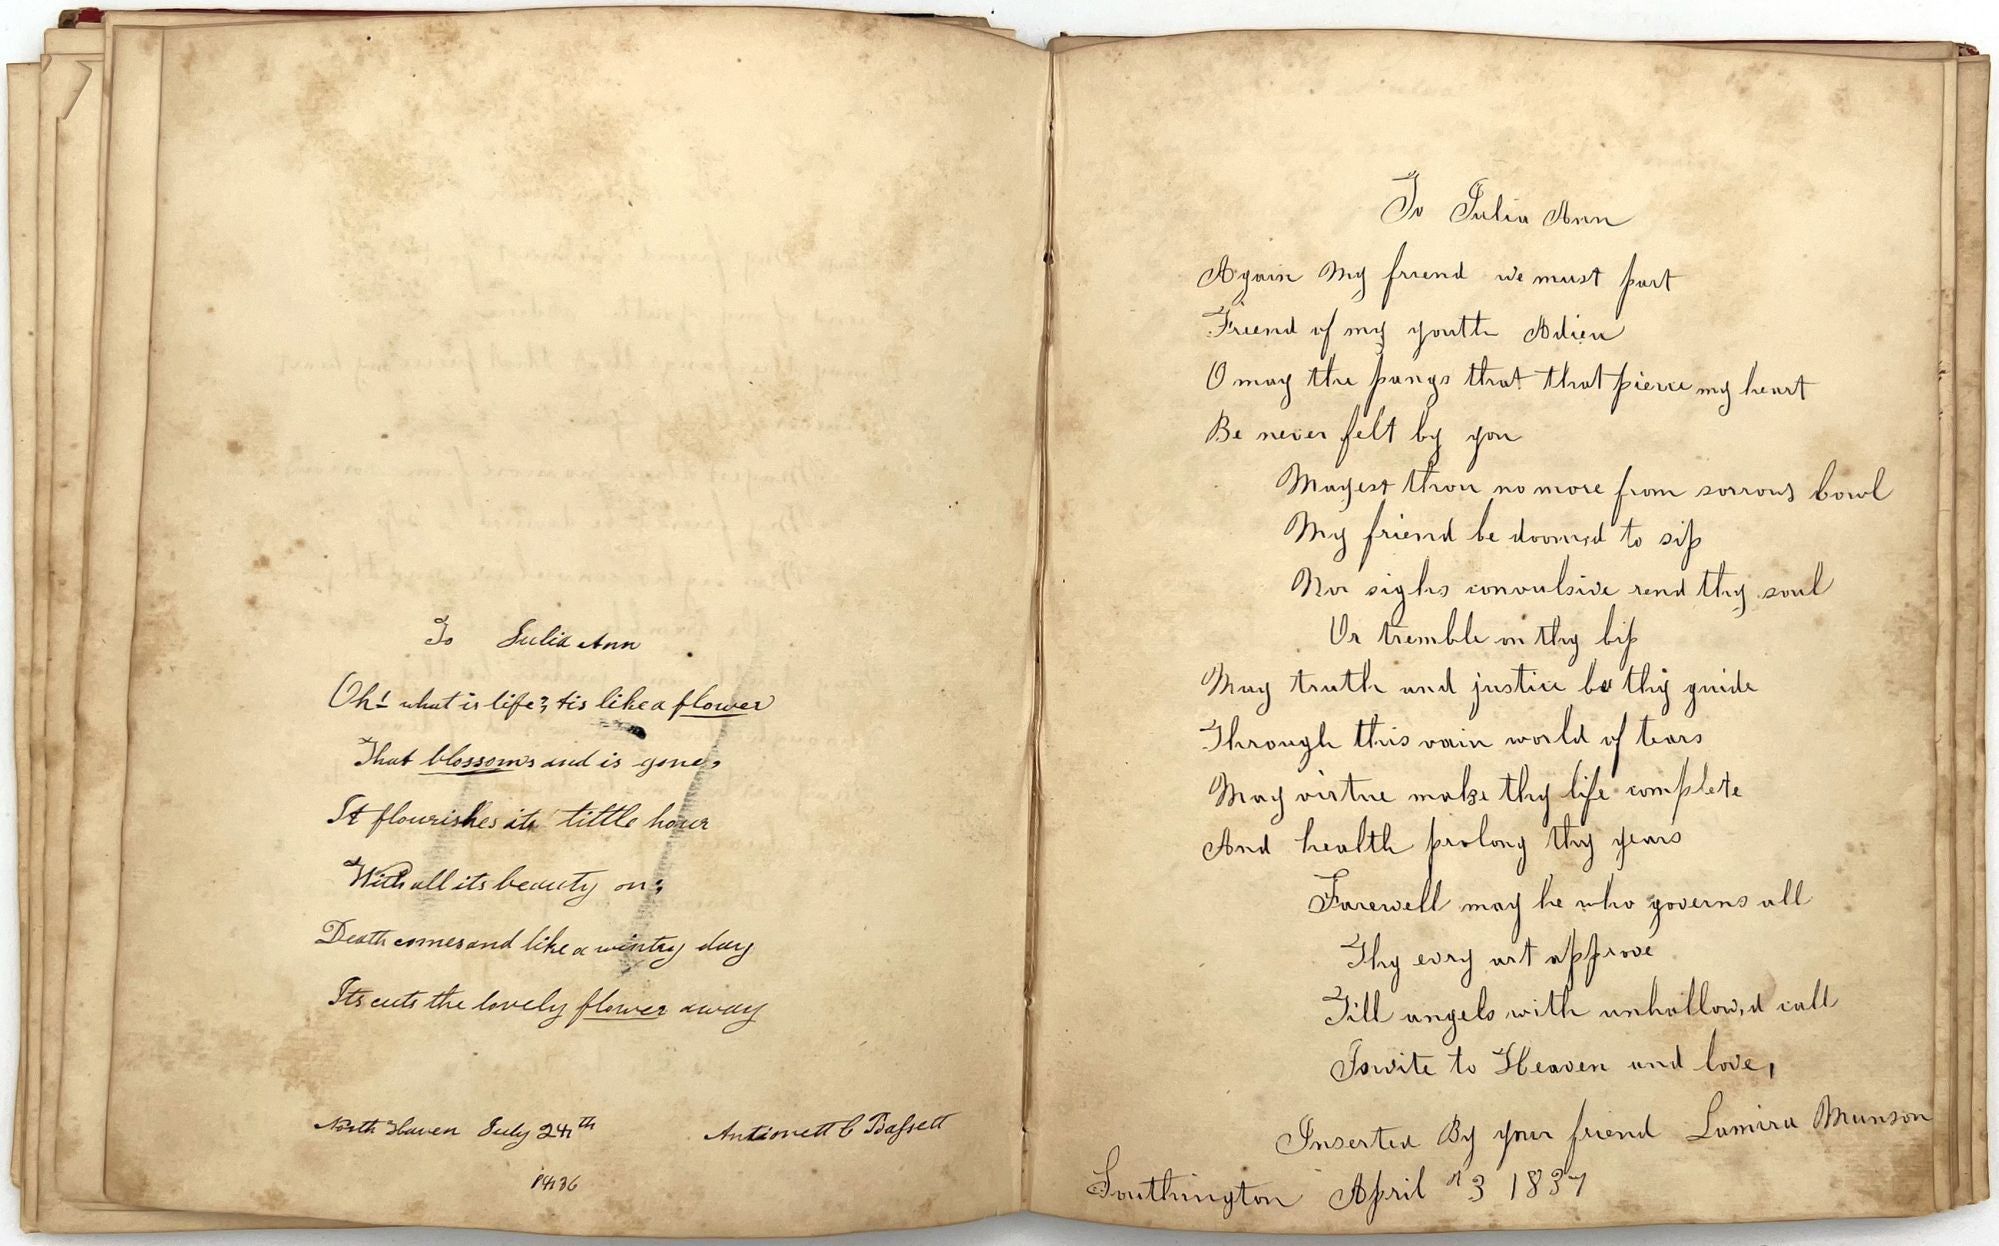 To Julia Ann
Oh! what is life; tis like a flower
That blossoms and is gone,
It flourishes its little hour
With all its beauty on;
Death comes and like a wintry day
Its cuts the lovely flower away
North Haven July 24th Antionett C Bassett
To Julia Ann
Again My friend we must part
Friend of my youth Adieu
O may the pangs that that pierce my heart
Be never felt by you
Mayest thou no more from sorrows bowl
My friend be doomed to sip
Nor sighs convulsive rend thy soul
Or tremble on thy lip
May truth and justice be thy guide
Through this vain world of tears
May virtue make thy life complete
And health prolong thy years
Farewell may he who governs all
Thy evry art approve
Till angels with unhallow,d call
Invite to Heaven and love,
Inserted By your friend Lamira Munson
Southington April 3 1837